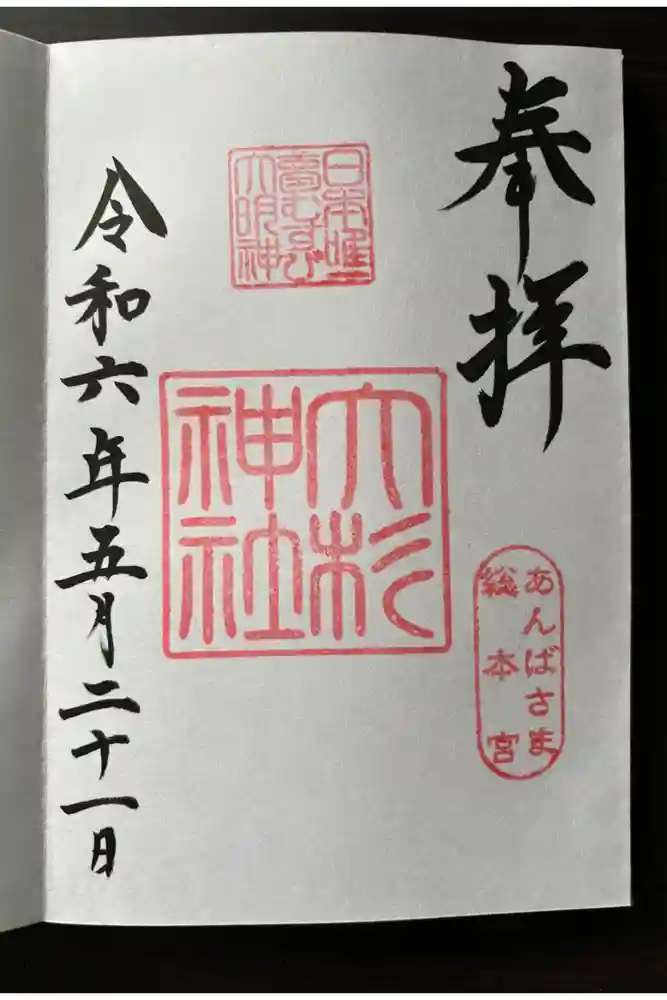 奉拝
日本唯一
夢むすび
大明神
大杉
神社
あんばさま
総本宮
令和六年五月二十一日